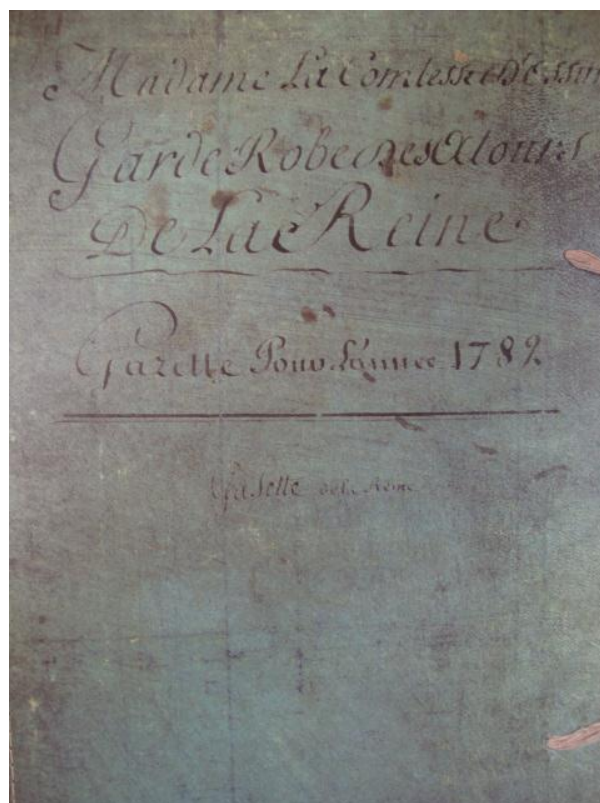 Madame La Comtesse D'Ossun
Garde Robe des Atours
De La Reine
Gazette Pour L'année 1782
Gazette de la Reine